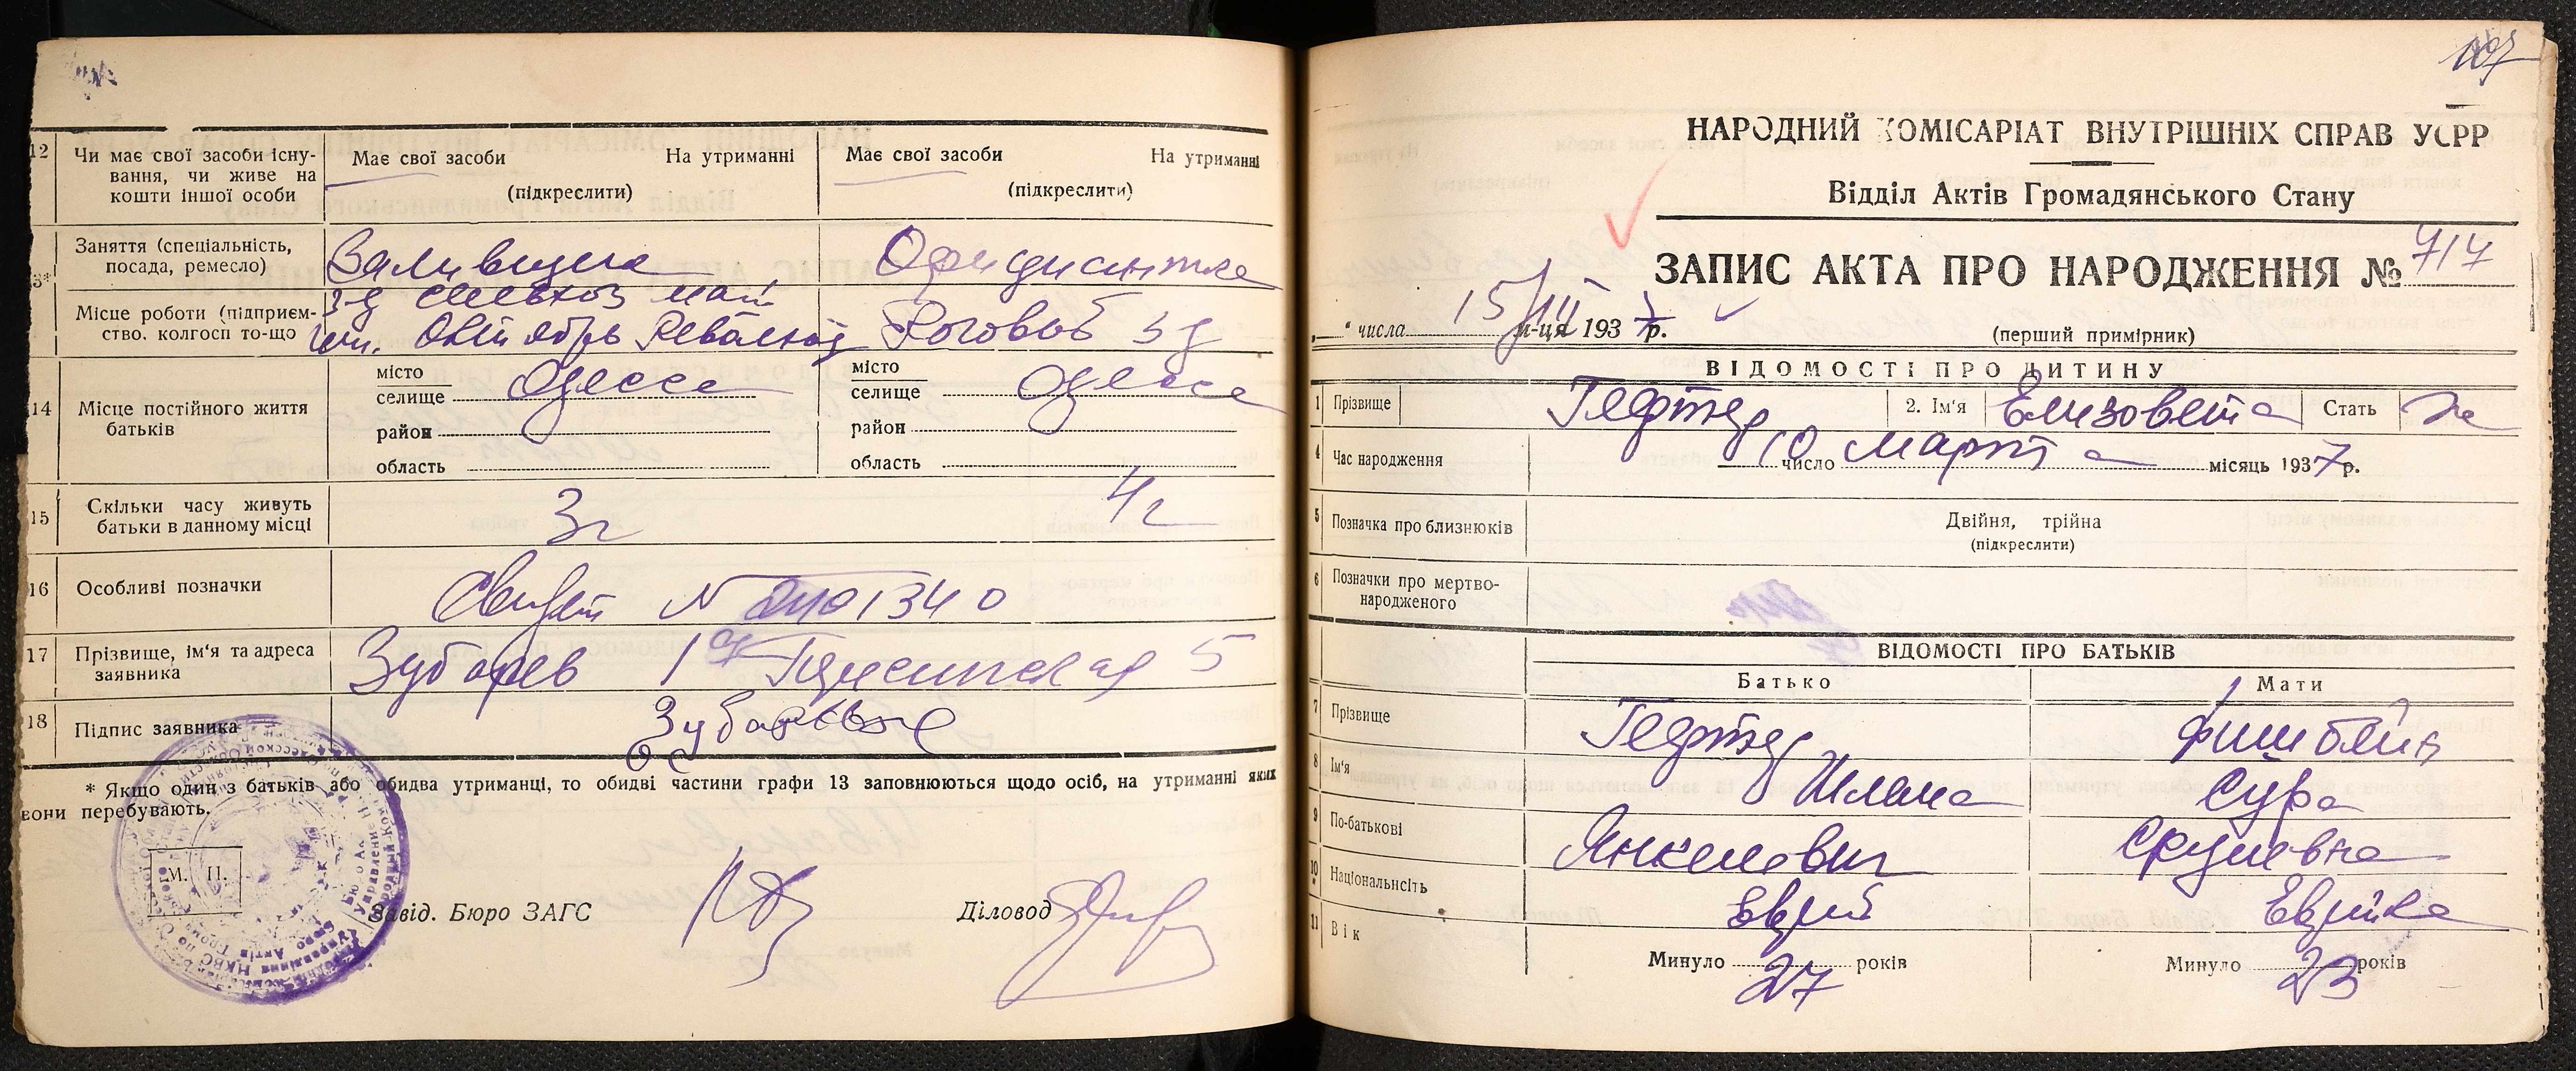 12 Чи має свої засоби існу-
вання, чи живе на
кошти іншої особи
Має свої засоби На утриманні
(підкреслити)
Має свої засоби На утриманні
(підкреслити)
Заняття (спеціальність,
посада, ремесло)
Заливщик
Официантка
3*
Місце роботи (підприєм-
ство, колгосп то-що
з-д сельхоз маш
им. Октябрь Революц
14 Місце постійного життя
батьків
місто
селище Одесса
район
область
місто
селище Одесса
район
область
15 Скільки часу живуть
батьки в данному місці
3 г
4 г
16 Особливі позначки
17 Прізвище, ім'я та адреса
заявника
Зубарев 5
18 Підпис заявника
* Якщо один з батьків або обидва утриманці, то обидві частини графи 13 заповнюються щодо осіб, на утриманні яких
вони перебувають.
М. П.
Завід. Бюро ЗАГС
Діловод
107
НАРОДНИЙ КОМІСАРІАТ ВНУТРІШНІХ СПРАВ УСРР
Відділ Актів Громадянського Стану
ЗАПИС АКТА ПРО НАРОДЖЕННЯ № 717
„ “ числа 15/III м-ця 1937 р.
(перший примірник)
ВІДОМОСТІ ПРО ДИТИНУ
1 Прізвище Гефтер 2. Ім'я Елизовета Стать ж
4 Час народження 10 число Марта місяць 1937 р.
5 Позначка про близнюків Двійня, трійна
(підкреслити)
6 Позначки про мертво-
народженого
ВІДОМОСТІ ПРО БАТЬКІВ
Батько Мати
7 Прізвище Гефтер Фишбейн
8 Ім'я Шлема Сура
9 По-батькові Янкелевич Срулевна
10 Національність Еврей Еврейка
11 Вік
Минуло 27 років
Минуло 23 років